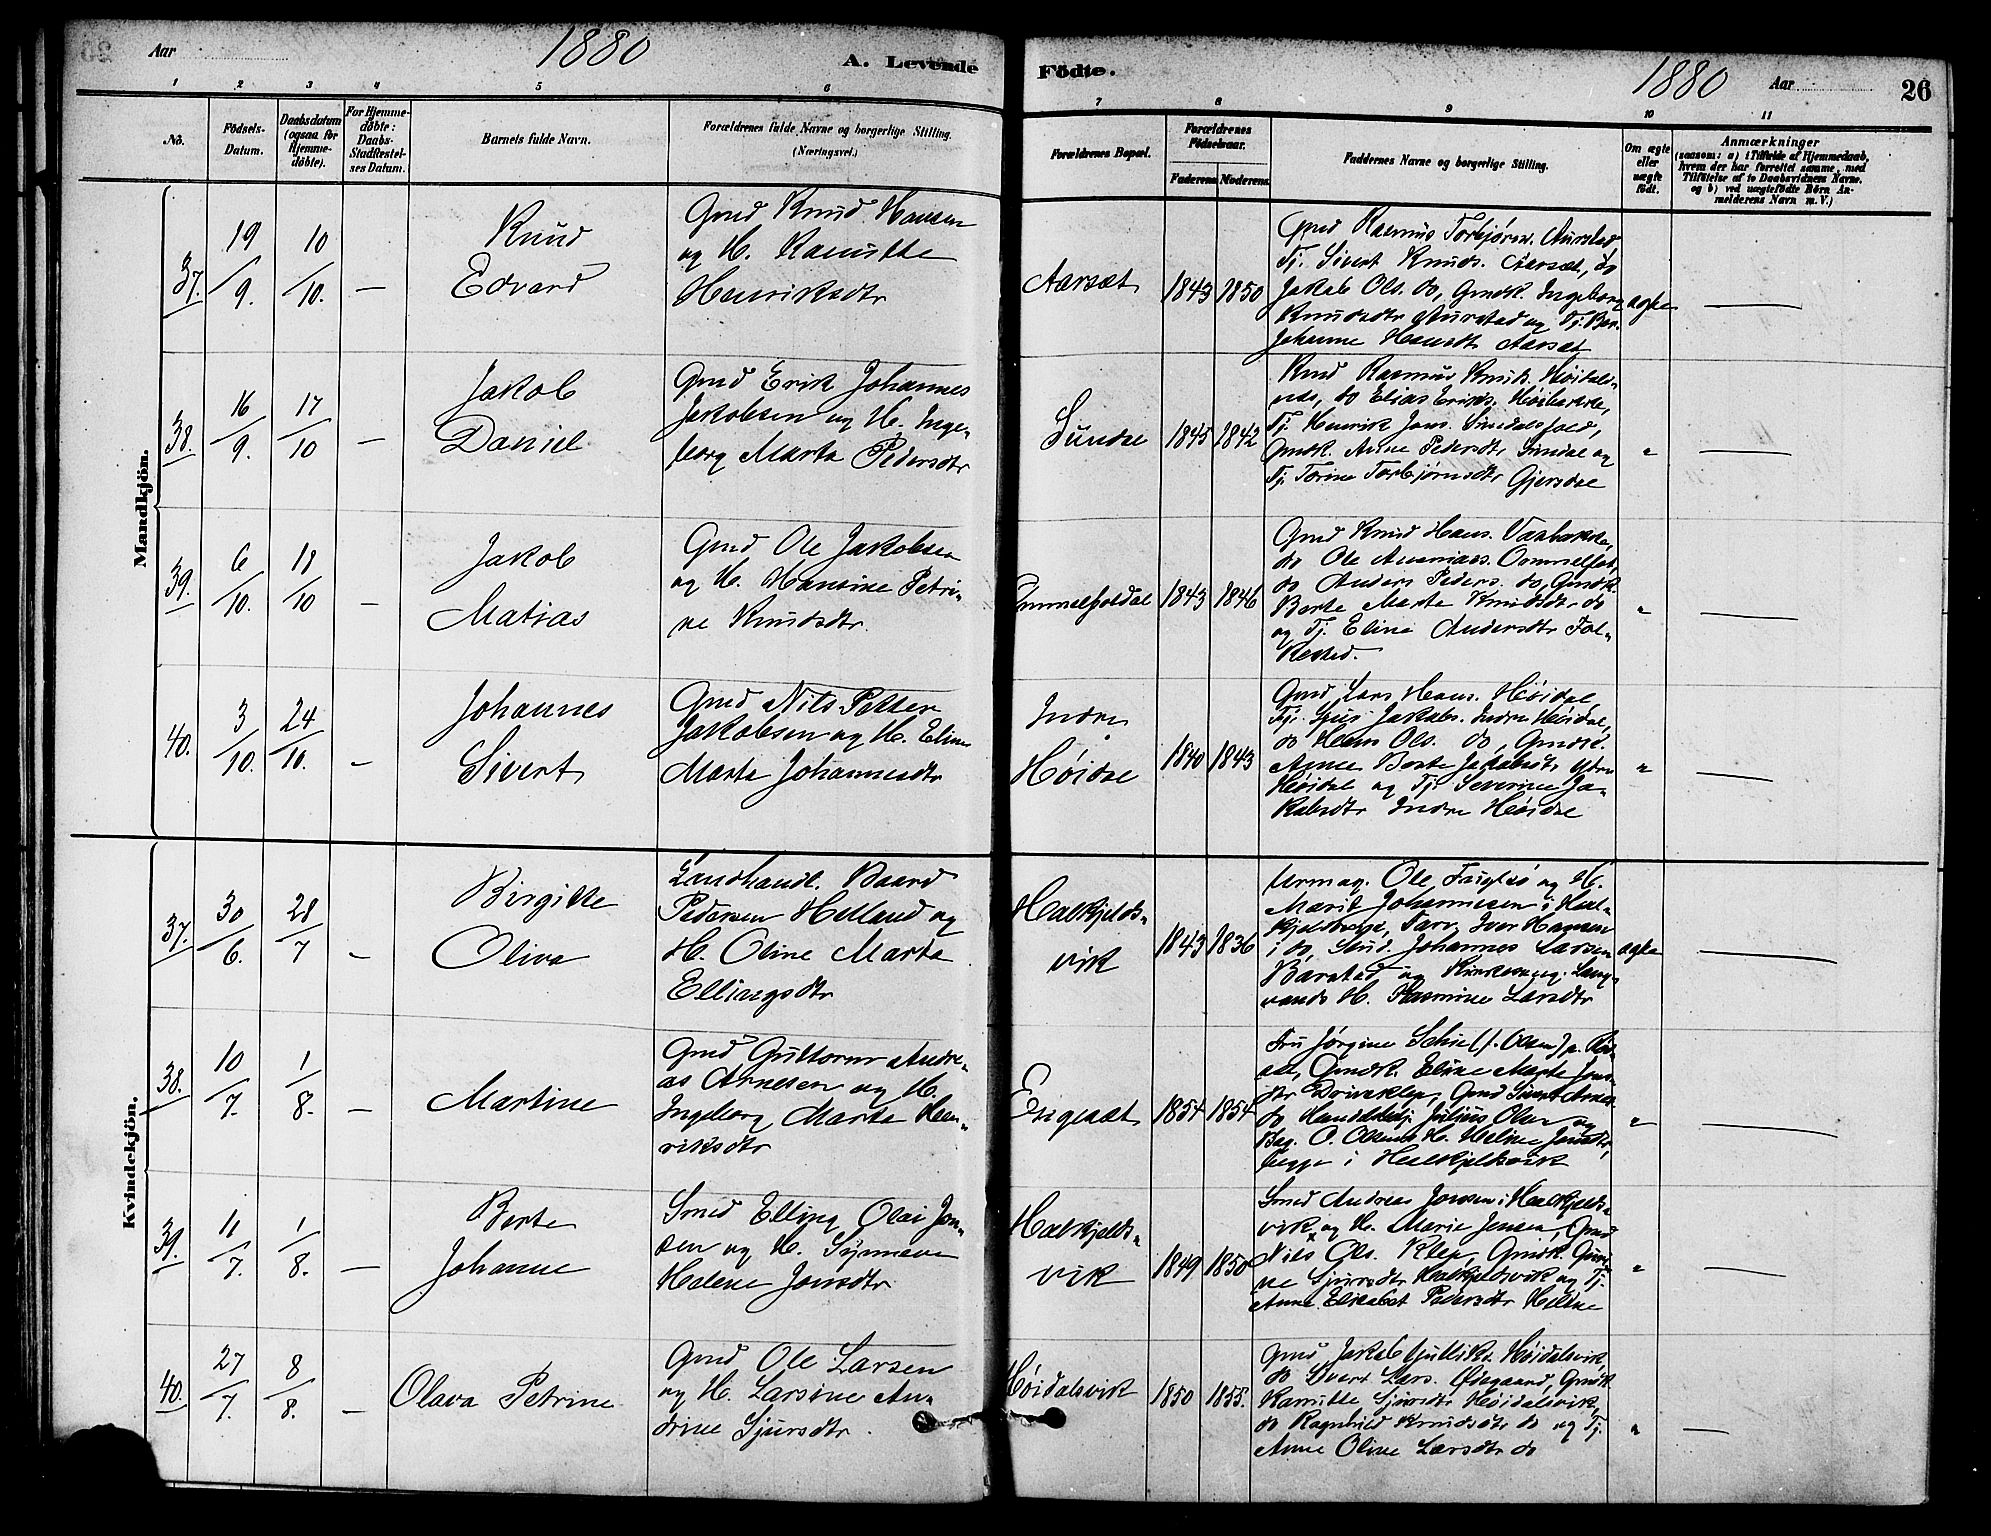 Aar 1880 A. Levende
Födte. 1880 Aar 26
1 2 3 4 5 6
7 8 9 10 11
No.
Födsels-
Datum.
Daabsdatum
(ogsaa for
Hjemme-
döbte).
For Hjemme-
döbte:
Daabs-
Stadfæstel-
ses Datum.
Barnets fulde Navn.
Forældrenes fulde Navne og borgerlige Stilling.
(Næringsvei.)
Forældrenes Bopæl.
Forældrenes
Födselsaar.
Faderens Moderens
Faddernes Navne og borgerlige Stilling.
Om ægte
eller
uægte
födt.
Anmærkninger
(saasom: a) i Tilfælde af Hjemmedaab,
hvem der har forrettet samme, med
Tilföielse af to Daabsvidners Navne,
og b) ved uægtefödte Börn An-
melderens Navn m. V.)
Mandkjön.
37. 19/9. 10/10. —
Knud
Edvard
Gmd Knud Hansen
og H. Ramitte
Henriksdtr
Aarsæt 1843 1850
Gmd Rasmus Torbjørns. Aurstad
Tj. Sivert Knuds. Aarsæt, do
Jakob Ols. do, Gmdk. Ingeborg
Knudsdtr Aurstad og Tj. Ber.
Johanne Hansdtr Aarsæt
ægte —
38. 16/9. 17/10 —
Jakob
Daniel
Gmd Erik Johannes
Jakobsen og H. Inge-
borg Marta Pedersdtr
Sundal 1845 1842
Rasmus Knuds. Høidals-
do Elias Eriks.
Tj. Henrik Jons.
Gmdk. Anne Pedersdtr Sundal og
Tj. Torine Torbjørnsdtr Gjersdal
" —
39. 6/10. 18/10 —
Jakob
Matias
Gmd Ole Jakobsen
og H. Hansine Petri-
ne Knudsdtr.
Ommelfotdal 1843 1846
Gmd Knud Hans.
do Ole Ananias. Ommelfot.
do Anders Peders. do, Gmdk
Berte Marte Knudsdtr do
og Tj. Eline Andersdtr Fol-
kestad.
" —
40. 3/10. 24/10. —
Johannes
Sivert
Gmd Nils Petter
Jakobsen og H. Eline
Marta Johannesdtr
Indre
Høidal 1840 1843
Gmd Lars Hans. Høidal,
Tj. Sjur Jakobs. Indre Høidal,
do Hans Ols. do, Gmdk.
Anne Berte Jakobsdtr Ytre
Høidal og Tj. Severine Ja-
kobsdtr Indre Høidal
" —
Kvindekjön.
37. 30/6. 28/7 —
Birgitte
Oliva
Landhandl. Baard
Pedersen Helland og
H. Oline Marta
Ellingsdtr
Halkjelds-
vik 1843 1836
Urmag. Ole og H.
Marit Johannesen i Hal-
kjeldsvik, Farv. Iver Hansen
i do, Stud. Johannes Larsen
Barstad og Kirkesang. Lang-
vands H. Rasmine Larsdtr
ægte —
38. 10/7. 1/8. —
Martine
Gmd Guttorm Andre-
as Arnesen og H.
Ingeborg Marta Hen-
riksdtr
Engeset 1854 1854
Fru Jørgine (f. Olsen)
Gmdk. Eline Marta Jons-
dtr Gmd Sivert Arnes.
do Julius Olsen og
Bag. O. Olsens H. Heline Jonsdtr,
begge i Halkjeldsvik
" —
39. 11/7. 1/8. —
Berte
Johanne
Smed Elling Olai Jon-
sen og H. Synneva
Helene Jonsdtr
Halkjelds-
vik 1849 1850
Smed Andreas Jensen i Halkjelds-
vik og H. Marie Jensen, Gmd
Nils Ols. Klep, Gmdk. Guri-
ne Sjursdtr Halkjeldsvik og Tj.
Anne Elisabet Pedersdtr Helene
" —
40. 27/7. 8/8. —
Olava Petrine
Gmd Ole Larsen
og H. Larsine An-
drine Sjursdtr.
Høidalsvik 1850 1855.
Gmd Jakob Gulliks. Høidalsvik,
do Sivert Lars. Ødegaard, Gmdk
Ramitte Sjursdtr Høidalsvik,
do Ragnhild Knudsdtr do og Tj.
Anne Oline Larsdtr do
" —